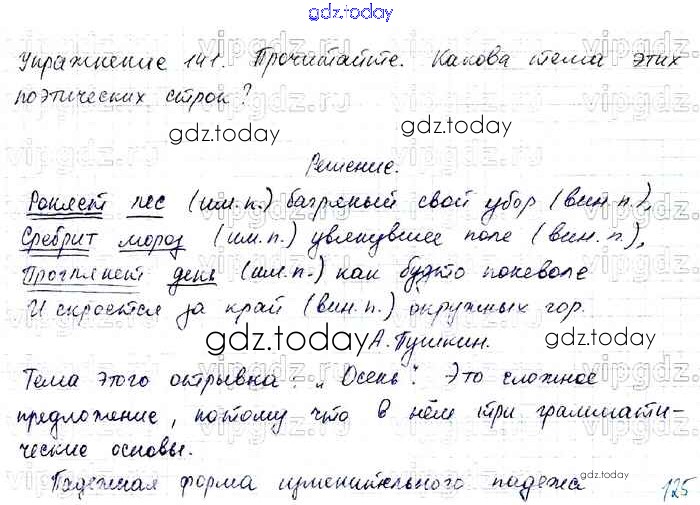 gdz.today
Упражнение 141. Прочитайте. Какова тема этих
поэтических строк?
gdz.today
gdz.today
Решение.
Роняет лес (им.п.) багряный свой убор (вин.п.),
Сребрит мороз (им.п.) увянувшее поле (вин.п.),
Проглянет день (им.п.) как будто поневоле
И скроется за край (вин.п.) окружных гор.
gdz.today
gdz.today
А. Пушкин.
Тема этого отрывка: "Осень". Это сложное
предложение, потому что в нём три граммати-
ческие основы.
gdz.today
Падежная форма именительного падежа
125